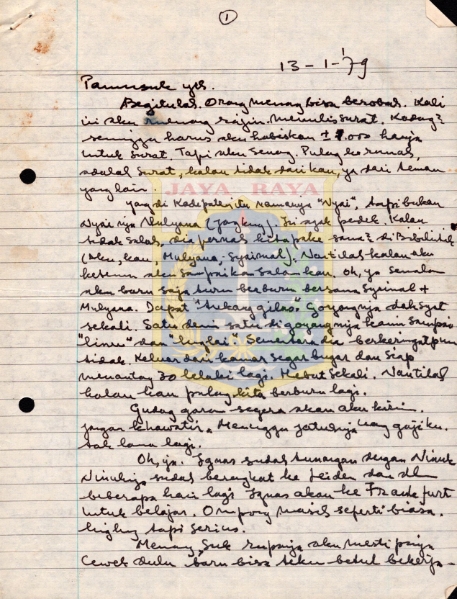 1
13-1-'79
Pamusuk yth.
Begitulah. Orang memang bisa berobah. Kali
ini aku memang rajin menulis surat. Kadang2
seminggu harus aku habiskan ± 1.000 hanya
untuk surat. Tapi aku senang. Pulang ke rumah,
adalah surat, kalau tidak dari kau, ya dari teman
yang lain.
JAYA RAYA
yang di Kadipaten itu namanya "Nyai", tapi bukan
Nyai nja Mulyana (jangkung). Ini agak pendek. Kalau
tidak salah, dia pernah kita pake sama2 di
(Aku, kau, Mulyana, Syarimal). Nantilah kalau aku
ketemu aku sampaikan salam kau. Oh, ya semalam
aku baru saja turun berburu bersama Syrimal +
Mulyana. Dapat "tukang gilas". Goyangnya dahsyat
sekali. Satu demi satu digoyangnja kami sampai
"limru" dan "lunglai". Sementara dia berkeringatpun
tidak. Keluar dari kamar segar bugar dan siap
menanting 30 lelaki lagi. Hebat sekali. Nantilah
kalau kau pulang kita berburu lagi.
Gudang garam segera akan aku kirim.
jangan khawatir. Menunggu jatuhnja uang gajiku.
tak lama lagi.
Oh, ya. Ignas sudah tunangan dengan Ninuk
Ninuknja sudah berangkat ke Leiden dan dlm
beberapa hari lagi Ignas akan ke Frankfurt
untuk belajar. Ompong masih seperti biasa.
tapi serius.
Memang Suk rupanja aku mesti punja
cewek dulu baru bisa aku betul bekerja-